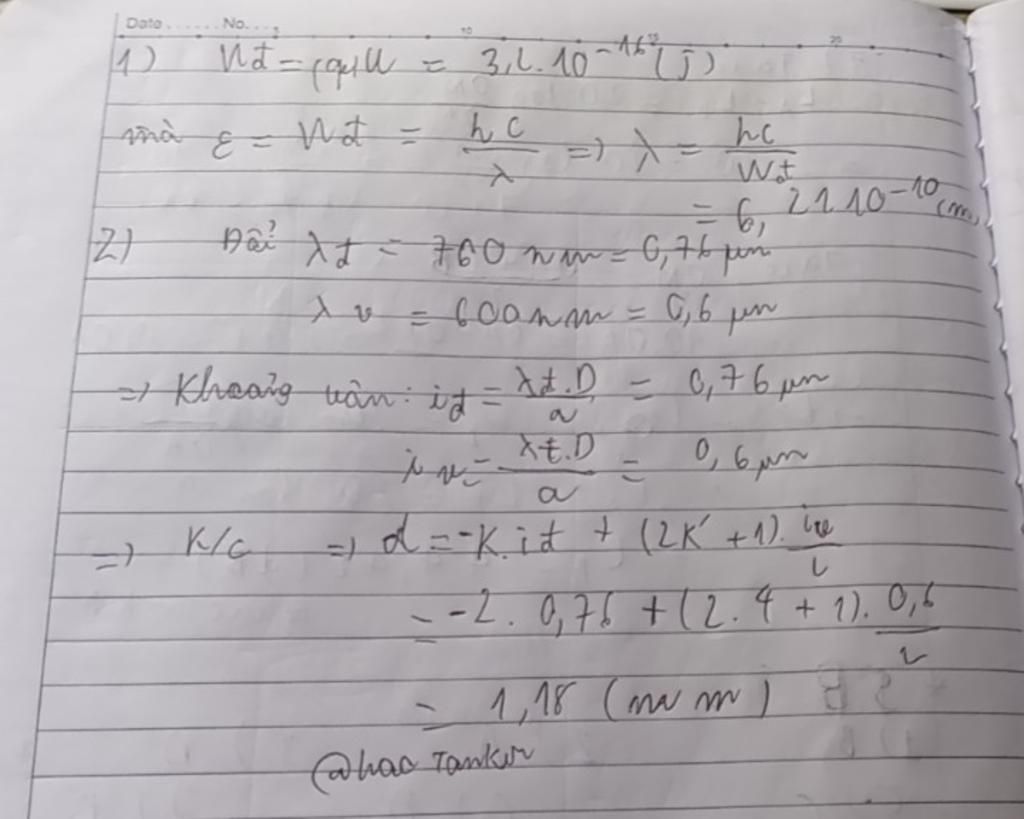 Date ...... No. ...
10 15 20
1) Wđ = |q|U = 3,2.10^-16 (J)
mà ε = Wđ = hc/λ => λ = hc/Wđ
= 6,21.10^-10 (m)
2) Đổi λđ = 760 nm = 0,76 μm
λv = 600 nm = 0,6 μm
=> Khoảng vân: iđ = λđ.D/a = 0,76 μm
iv = λt.D/a = 0,6 μm
=> K/c => d = -K.iđ + (2K' + 1).iv/2
= -2. 0,76 + (2.4 + 1). 0,6/2
= 1,18 (mm)
@hao Tankur